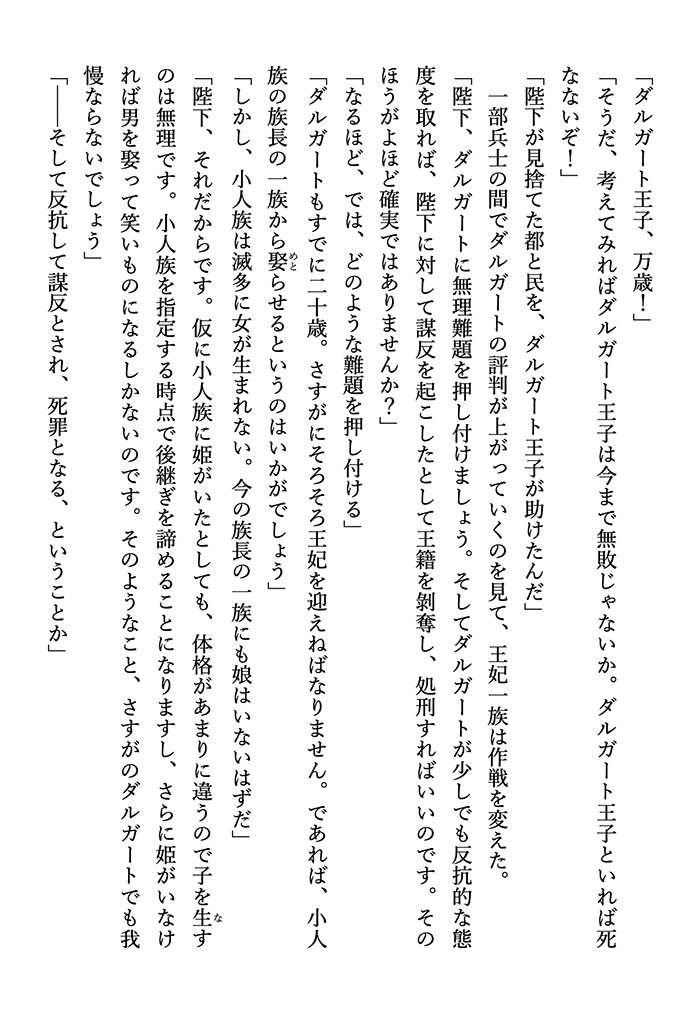 「ダルガート王子、万歳！」
「そうだ、考えてみればダルガート王子は今まで無敗じゃないか。ダルガート王子といれば死
なないぞ！」
「陛下が見捨てた都と民を、ダルガート王子が助けたんだ」
　一部兵士の間でダルガートの評判が上がっていくのを見て、王妃一族は作戦を変えた。
「陛下、ダルガートに無理難題を押し付けましょう。そしてダルガートが少しでも反抗的な態
度を取れば、陛下に対して謀反を起こしたとして王籍を剝奪し、処刑すればいいのです。その
ほうがよほど確実ではありませんか？」
「なるほど、では、どのような難題を押し付ける」
「ダルガートもすでに二十歳。さすがにそろそろ王妃を迎えねばなりません。であれば、小人
族の族長の一族から娶めとらせるというのはいかがでしょう」
「しかし、小人族は滅多に女が生まれない。今の族長の一族にも娘はいないはずだ」
「陛下、それだからです。仮に小人族に姫がいたとしても、体格があまりに違うので子を生なす
のは無理です。小人族を指定する時点で後継ぎを諦めることになりますし、さらに姫がいなけ
れば男を娶って笑いものになるしかないのです。そのようなこと、さすがのダルガートでも我
慢ならないでしょう」
「――そして反抗して謀反とされ、死罪となる、ということか」